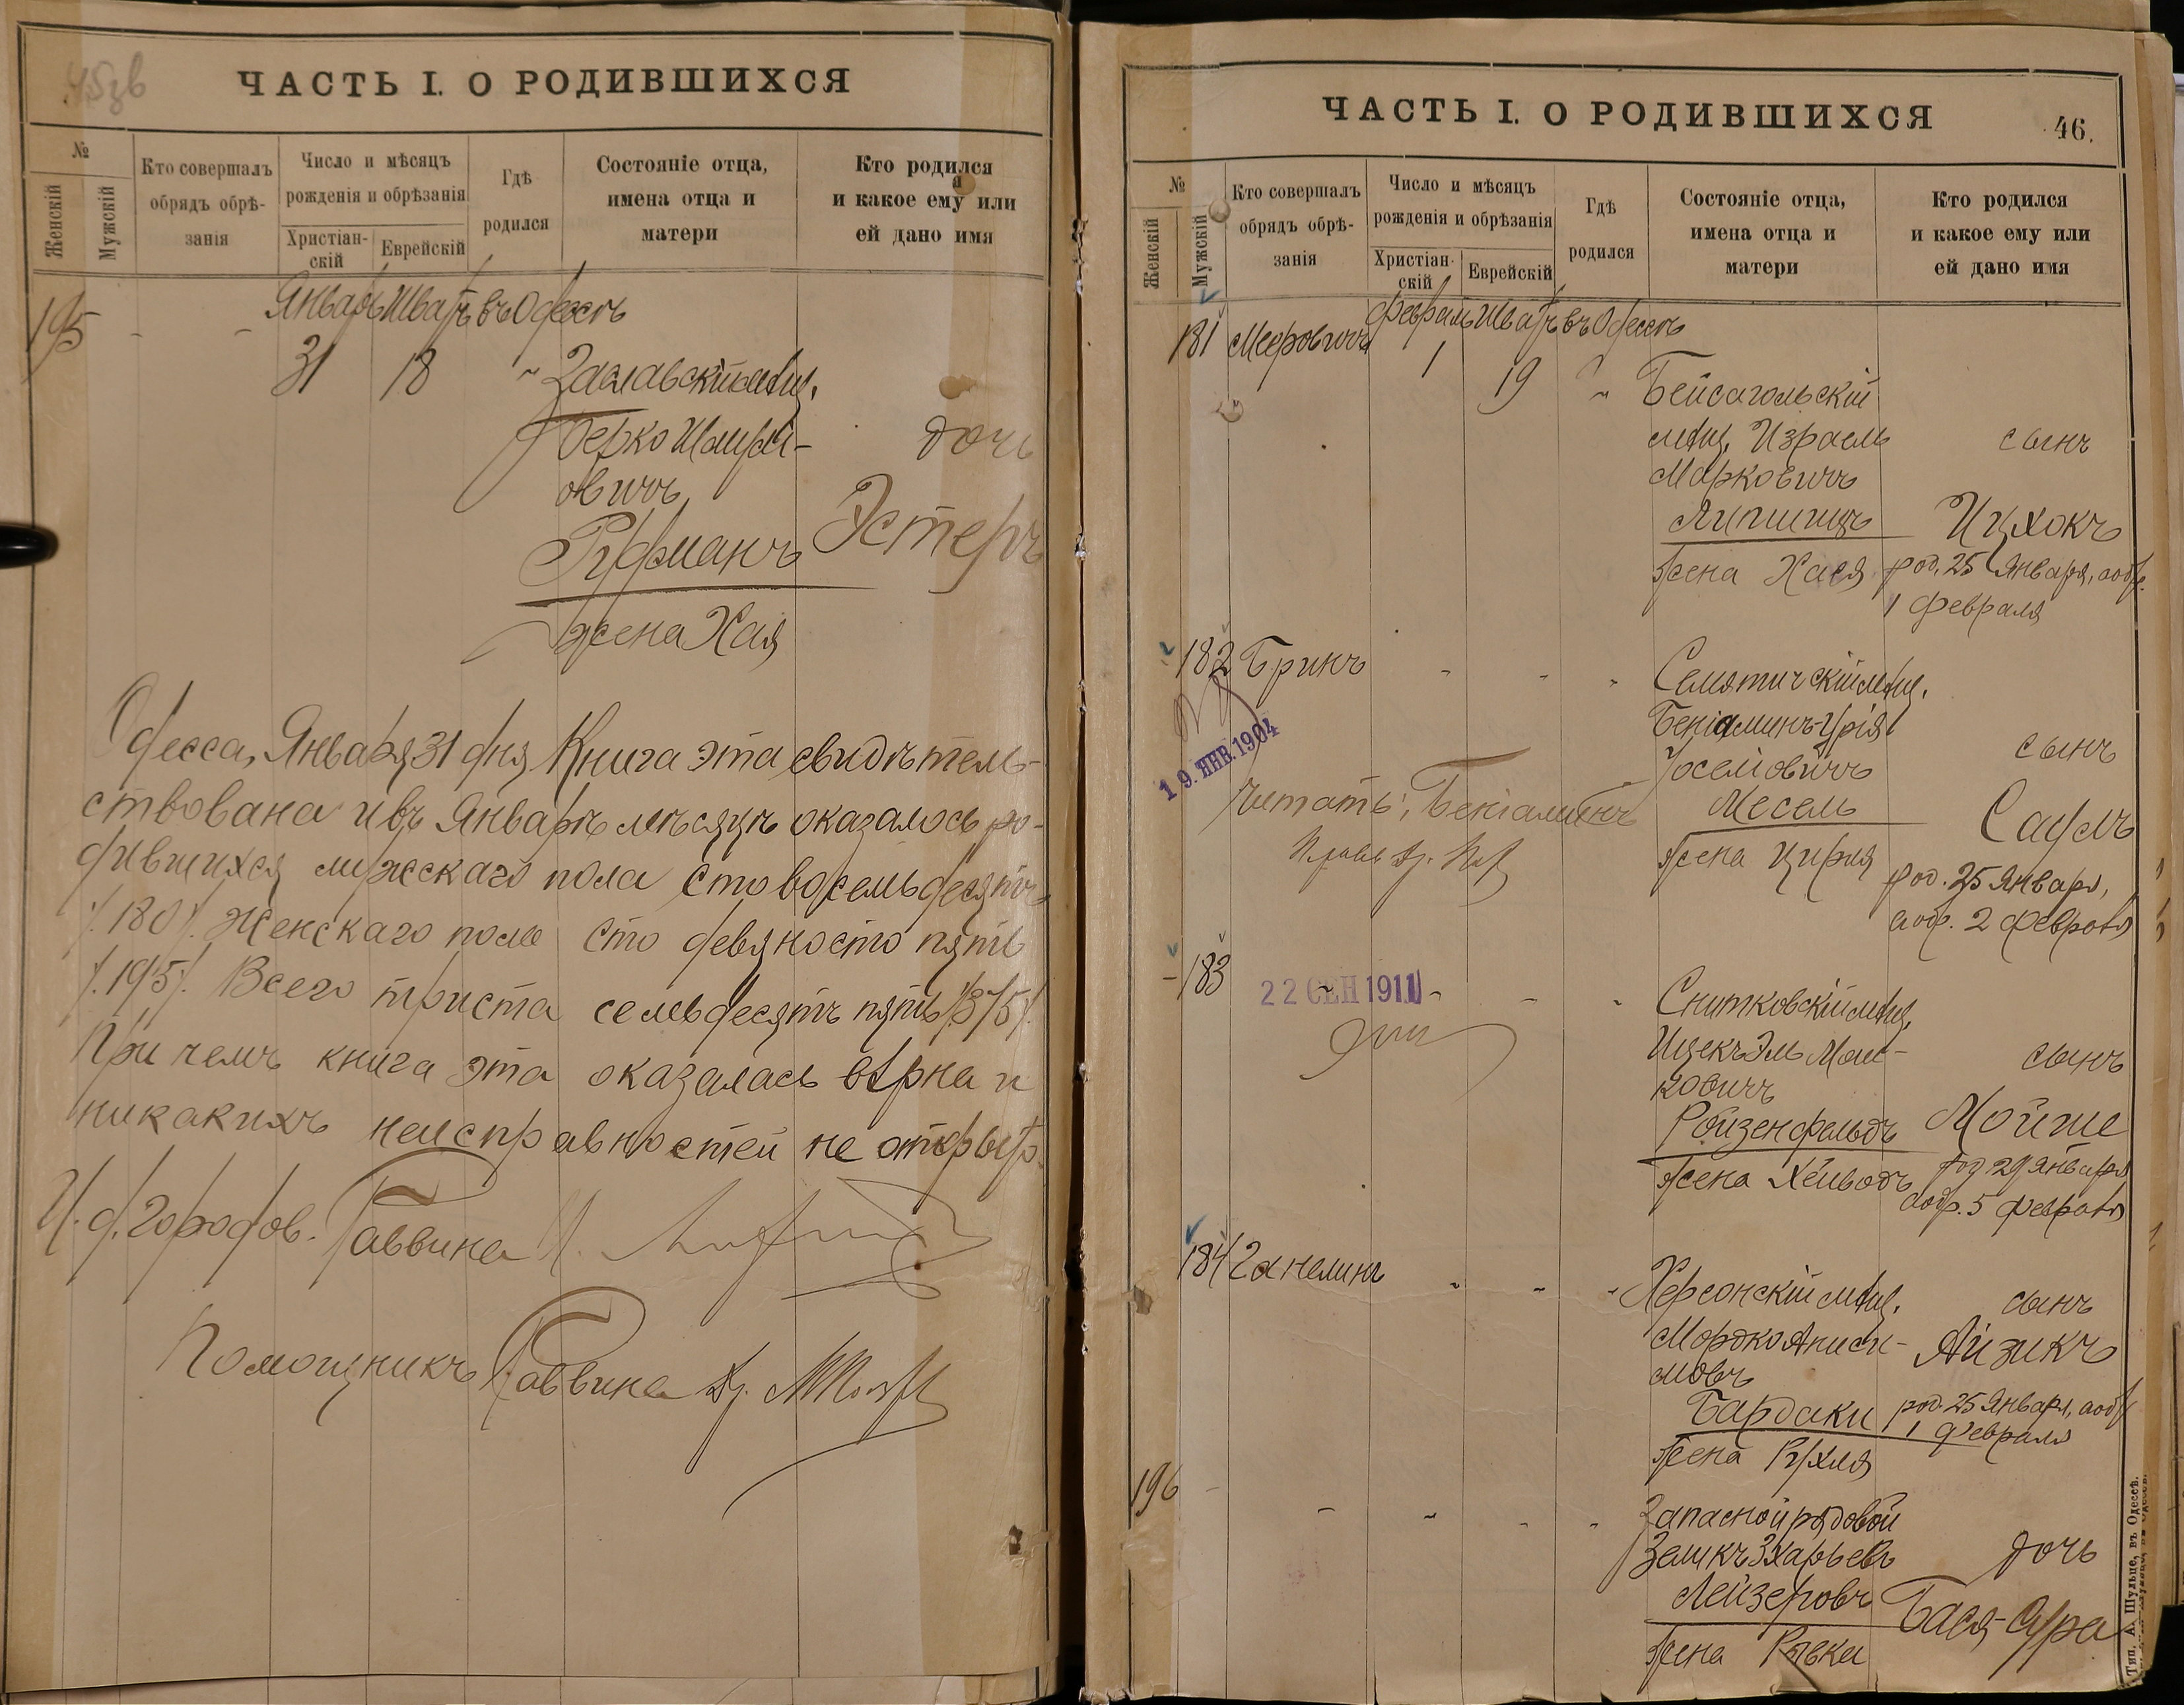 45зв
ЧАСТЬ I. О РОДИВШИХСЯ
№
Женскій
Мужскій
Кто совершалъ
обрядъ обрѣ-
занія
Число и мѣсяцъ
рожденія и обрѣзанія
Христіан-
скій
Еврейскій
Гдѣ
родился
Состояніе отца,
имена отца и
матери
Кто родился
и какое ему или
ей дано имя
Январь Шватъ въ Одессѣ
195 - - 31 18 " Заславскій мѣщ.
Берко Шмуль-
овичъ
дочь
Гуфманъ
Эстеръ
жена Хая
Одесса, Января 31 дня Книга эта свидѣтель-
ствована и въ Январѣ мѣсяцѣ оказалось ро-
дившихся мужскаго пола сто восемьдесятъ
/.180/. Женскаго пола сто девяносто пять
/.195/. Всего триста семьдесятъ пять /.375/.
При чемъ книга эта оказалась вѣрна и
никакихъ неисправностей не открыто.
И. д. Городов. Раввина
Помощникъ Раввина Др.
ЧАСТЬ I. О РОДИВШИХСЯ
46.
№
Женскій
Мужскій
Кто совершалъ
обрядъ обрѣ-
занія
Число и мѣсяцъ
рожденія и обрѣзанія
Христіан-
скій
Еврейскій
Гдѣ
родился
Состояніе отца,
имена отца и
матери
Кто родился
и какое ему или
ей дано имя
Февраль Шватъ въ Одессѣ
181 Мееровичъ 1 19 " Бейсагольскій
мѣщ. Израель
Марковичъ
сынъ
Липшицъ
Ицхокъ
жена Хася
род. 25 Января, а обр.
1 Февраля
182 Бринъ - - - Семятичскій мѣщ.
Бекіаминъ-Урія
Іоселіовичъ
сынъ
Месель
Саулъ
жена Цирля
род. 25 Января,
а обр. 2 Февраля
19. ЯНВ. 1904
Читать: Беніаминъ
183 22 СЕН 1911 - - - Снитковскій мѣщ.
Ицекъ Эль Мош-
ковичъ
сынъ
Ройзенфельдъ
Мойше
жена Хейводъ
род 29 Января
а обр. 5 Февраля
184 Ганелинъ - - - Херсонскій мѣщ.
Мордко Аниси-
мовъ
сынъ
Айзикъ
Бардаки
род. 25 Января, а обр.
1 Февраля
жена Рухля
196 - - - - - Запасной рядовой
Зеликъ Зхарьевъ
дочь
Лейзеровъ
Бася-Сура
жена Ривка
Тип. А. Шульце, въ Одессѣ.